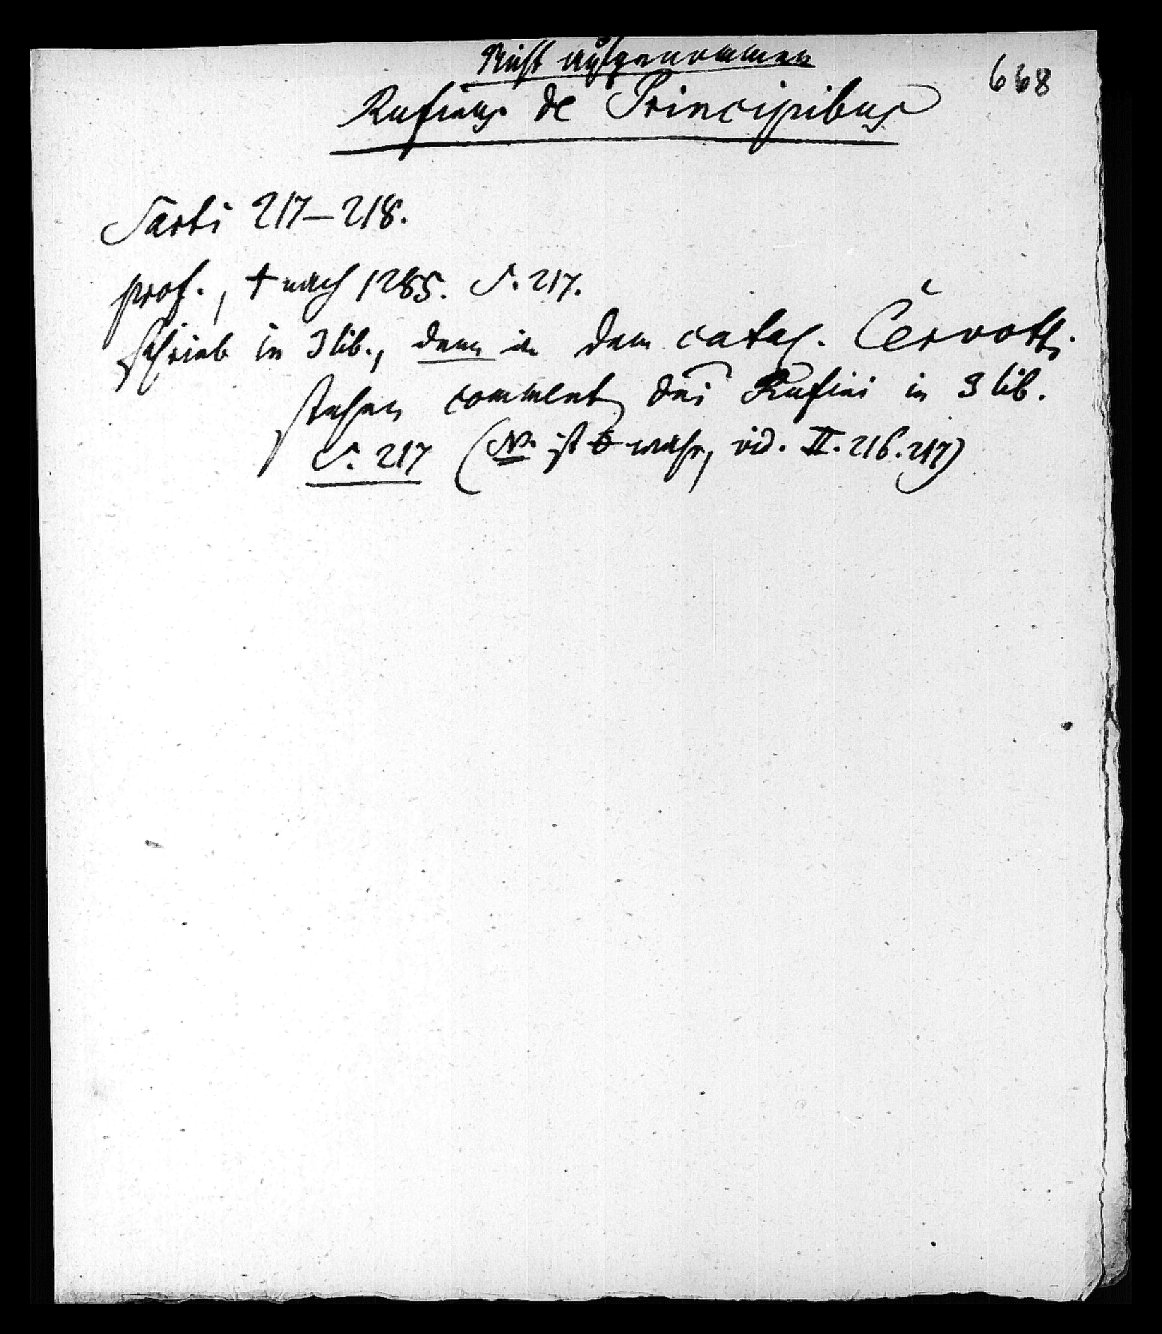 Nicht aufgenommen
668
Rufinus de Principibus
Sarti 217–218.
prof., † nach 1285. S. 217.
schrieb in 3 lib., denn in dem catal. Cervotti
stehen comment dni Rufini in 3 lib.
S. 217 (NB ist wahr, vid. II. 216. 217)